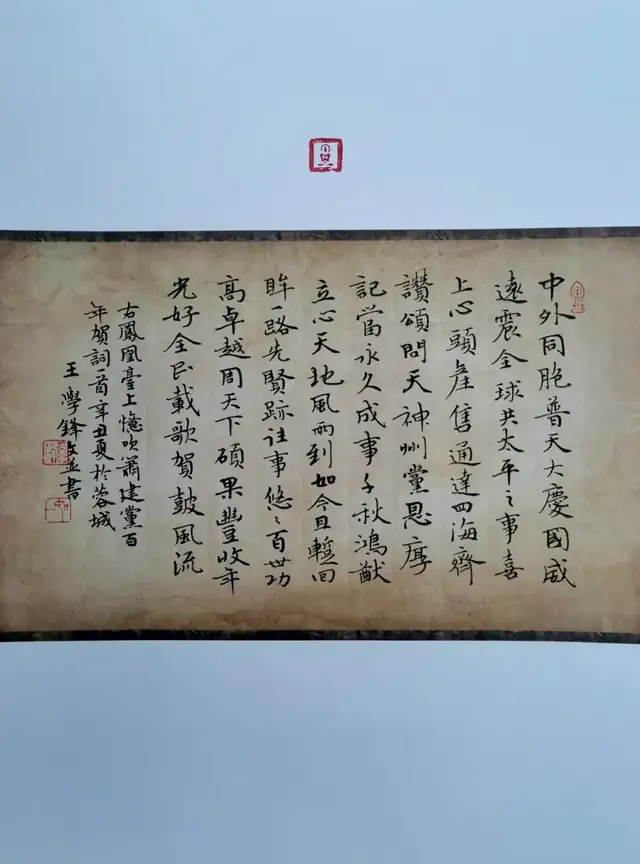 中外同胞普天大慶國威
遠震全球共太平之事喜
上心頭產售通達四海齊
讚頌問天神州黨恩厚
記當永久成事千秋鴻猷
立心天地風雨到如今且暫回
眸一路先賢跡往事悠々百世功
高卓越周天下碩果豐收年
光好全民載歌賀鼓風流
右鳳凰臺上憶吹簫建黨百
年賀詞一首辛丑夏於蓉城
王學鋒文並書